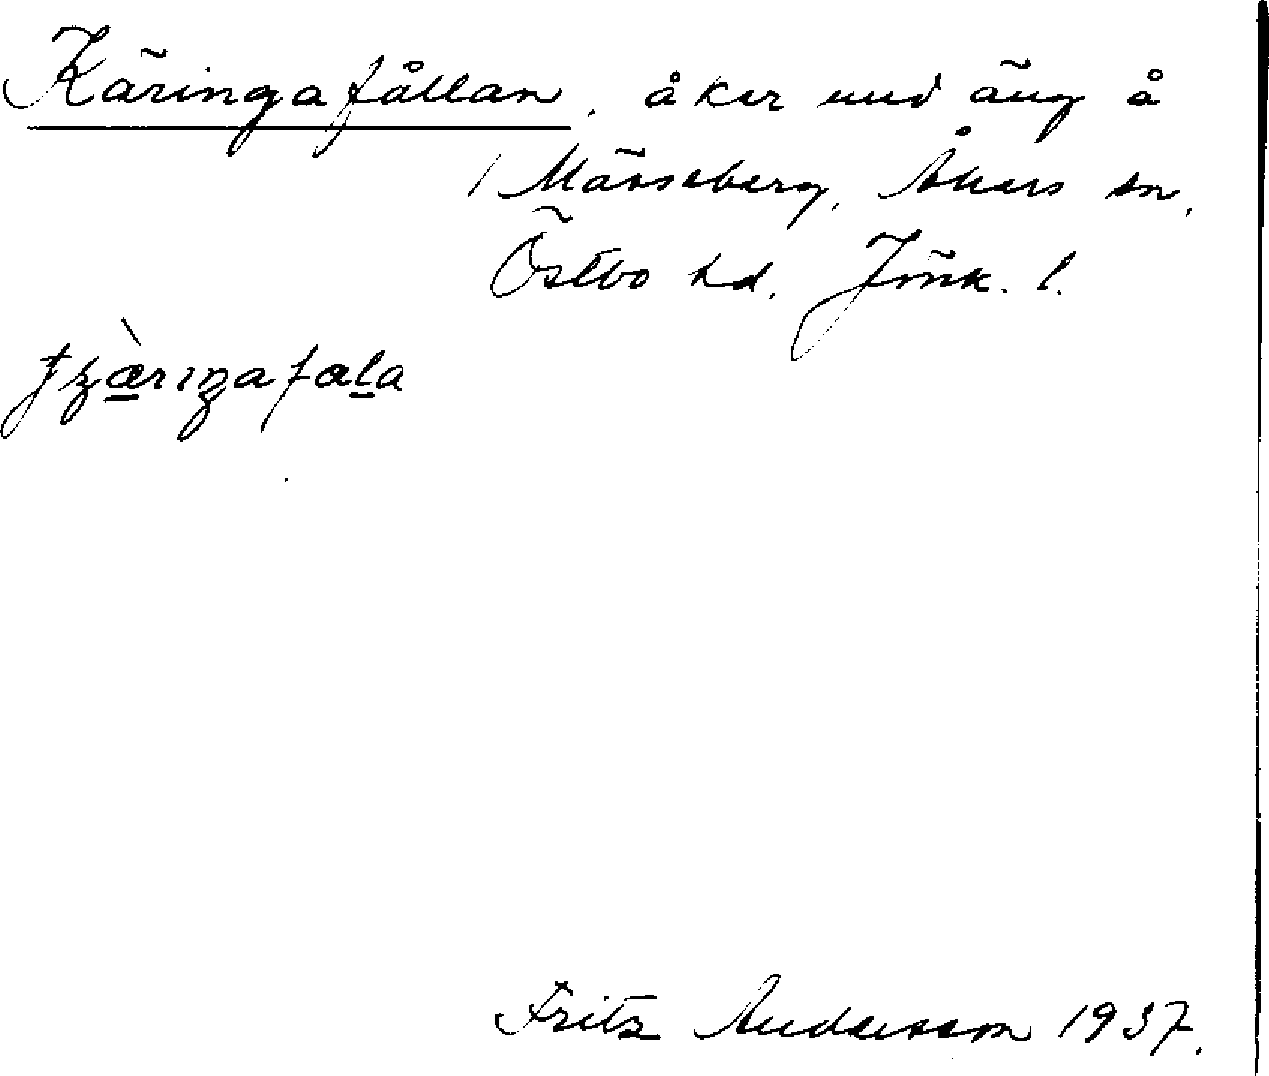 Käringafållan, åker und äng å
Mässeberg, Åkers sn,
Östbo hd. Jönk. l.
Fritz Andersson 1937.